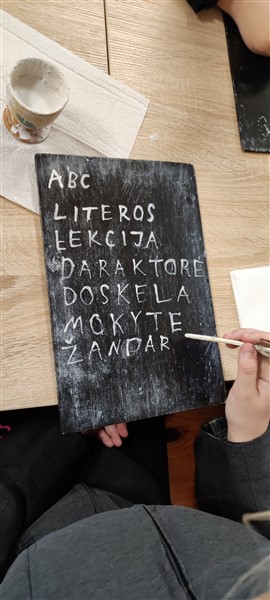 ABC
LITEROS
LEKCIJA
DARAKTORĖ
DOSKELA
MOKYTE
ŽANDAR